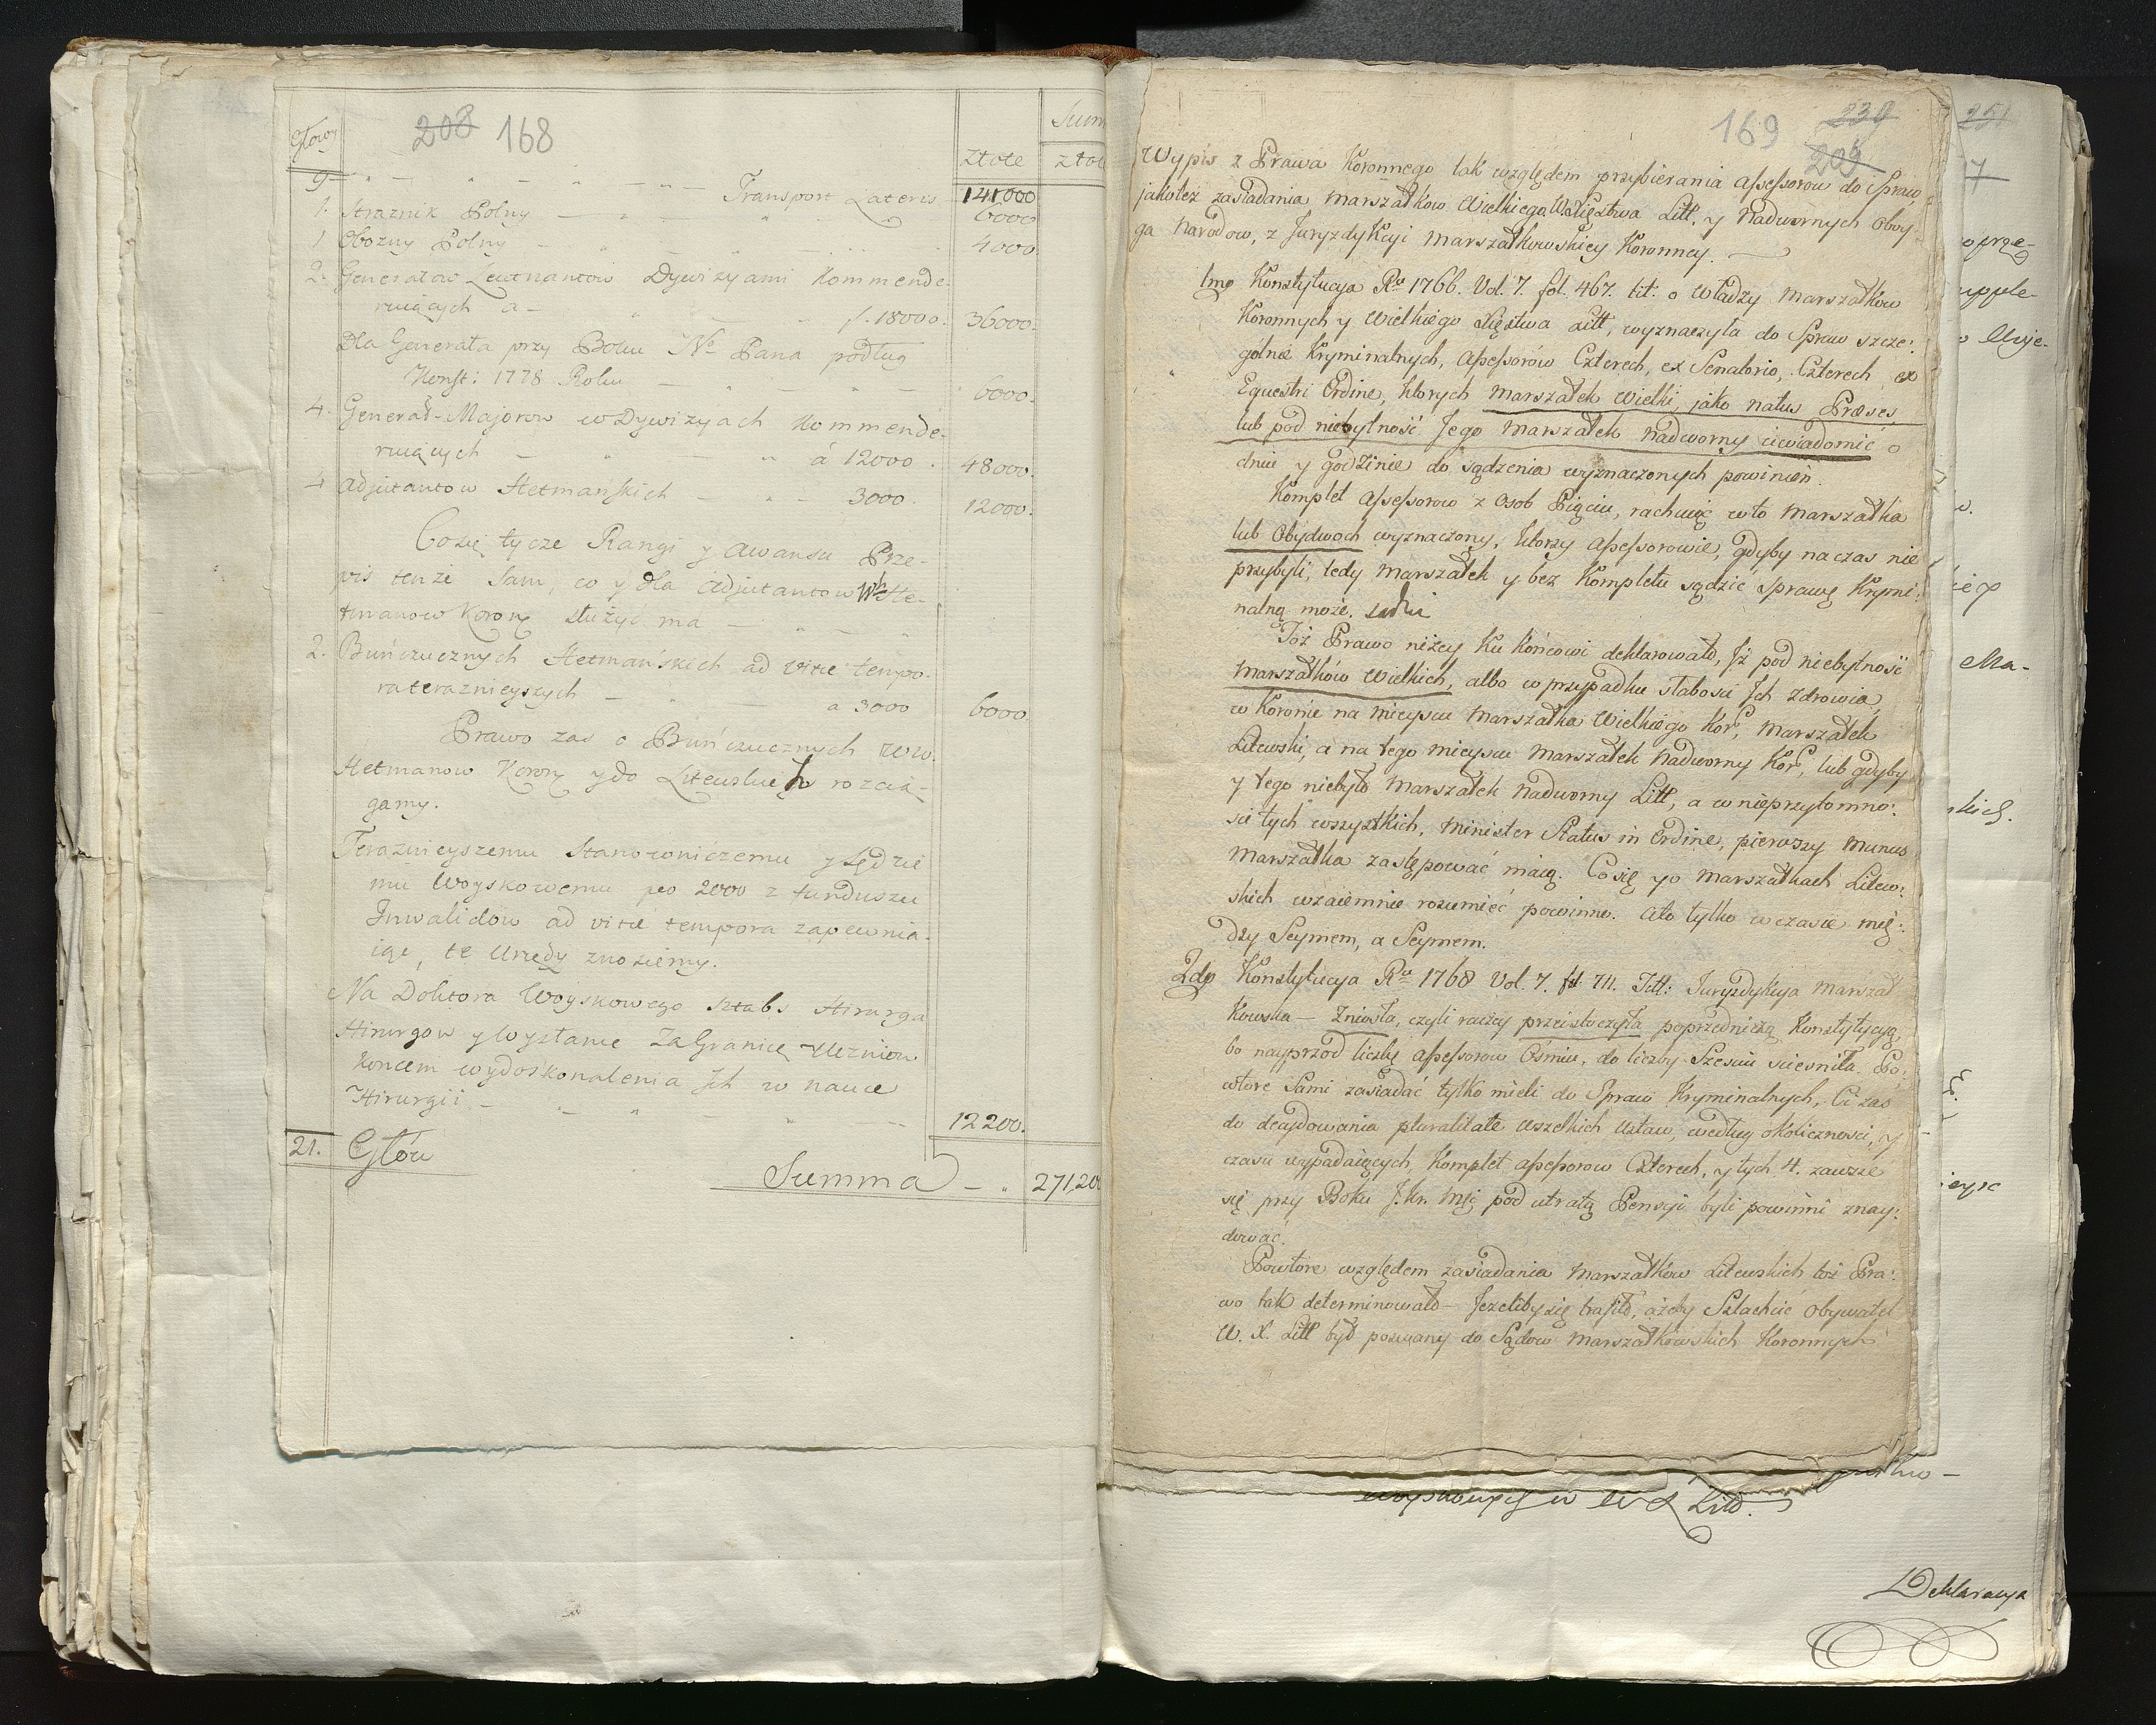 208 168
Głowy
Złote
Summ
Złote
9 Transport Lateris 141000
1. Straznik Polny 6000
1 Obozny Polny 4000.
2. Generałow Leutnantow Dywizyami Kommende-
ruiących a f. 18000. 36000.
Dla Generała przy Boku Na Pana podług
Konst: 1778 Roku 6000.
4. Generał-Majorow w Dywizyach Kommende-
ruiących á 12000. 48000.
4 Adjutantow Hetmańskich 3000. 12000.
Co się tycze Rangi y Awansu Prze-
pis tenże sam, co y dla Adjutantow Wh He-
tmanow Korony służyć ma
2. Buńczucznych Hetmańskich ad vitæ tempo-
ra teraznieyszych a 3000 6000.
Prawo zas o Buńczucznych WW.
Hetmanow Korony y do Litewskich rozcią-
gamy.
Teraznieyszemu Stanowniczemu y Sędzie
mu Woyskowemu po 2000 z funduszu
Inwalidow ad vitæ tempora zapewnia-
iąc, te Urzędy znosiemy.
Na Doktora Woyskowego Sztabs Hirurga
Hirurgow y Wysłanie Za Granicę Uczniow
koncem wydoskonalenia Ich w nauce
Hirurgii 12200.
21. Głów
Summa 271,200
169 230 209
Wypis z Prawa Koronnego tak względem przybierania Assessorow do Spraw,
jakoteż zasiadania Marszałkow Wielkiego W. Xięstwa Litt. y Nadwornych Oboy-
ga Narodow, z Juryzdykcyi Marszałkowskiey Koronney.
Imo Konstytucya Ru 1766. Vol. 7. fol. 467. tit. o Władzy Marszałkow
Koronnych y Wielkiego Xięstwa Litt, wyznaczyła do Spraw szcze:
gólnie Kryminalnych, Assessorów Czterech, ex Senatorio, Czterech ex
Equestri Ordine, których Marszałek Wielki, jako natus Præses,
lub pod niebytność Jego Marszałek Nadworny uwiadomić o
dniu y godzinie do sądzenia wyznaczonych powinien.
Komplet Assessorow z Osob Pięciu, rachuiąc w to Marszałka
lub Obydwoch wyznaczony, którzy Assessorowie, gdyby na czas nie
przybyli, tedy Marszałek y bez Kompletu sądzić sprawę Krymi:
nalną może.
Toż Prawo niżey ku końcowi deklarowało, Iż pod niebytność
Marszałków Wielkich, albo w przypadku słabości Ich zdrowia,
w Koronie na mieyscu Marszałka Wielkiego Kor, Marszałek
Litewski, a na tego mieyscu Marszałek Nadworny Kor, lub gdyby
y tego niebyło Marszałek Nadworny Litt, a w nieprzytomno:
ści tych wszystkich, Minister Status in Ordine, pierwszy munus
Marszałka zastępować maią. Co się y o Marszałkach Litew:
skich wzaiemnie rozumieć powinno. Ato tylko w czasie mię:
dzy Seymem, a Seymem.
2do Konstytucya Ru 1768 Vol. 7. fol 711. Titt: Juryzdykcya Marszał
kowska — Zniosła, czyli raczey przeistoczyła poprzedniczą Konstytycyą,
bo nayprzod liczbę Assessorow Ośmiu, do liczby Sześciu sciesniła. Po:
wtore Sami zasiadać tylko mieli do Spraw Kryminalnych, Ci zas
do decydowania pluralitate wszelkich Ustaw, według okoliczności, y
czasu wypadaiących, Komplet Assessorow Czterech, y tych 4. zawsze
się przy Boku J. Kr. Mci pod utratą Pensyi byli powinni znay:
dować.
Powtore względem zasiadania Marszałków Litewskich toż Pra:
wo tak determinowało — Jeżeliby się trafiło, ażeby Szlachcic Obywatel
W. X. Litt był pozwany do Sądow Marszałkowskich Koronnych
251
7
Woyskowych w W X Litt.
Deklaracya